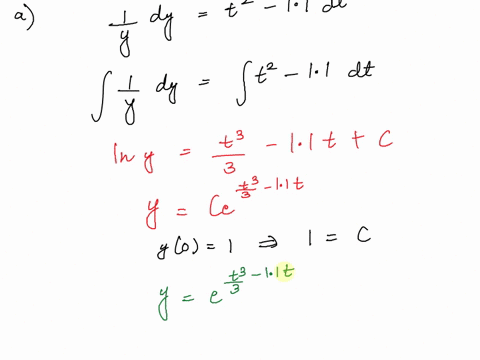 a) 1/y dy = t² - 1.1 dt
∫ 1/y dy = ∫ t² - 1.1 dt
ln y = t³/3 - 1.1t + C
y = Ce^(t³/3 - 1.1t)
y(0) = 1 ⇒ 1 = C
y = e^(t³/3 - 1.1t)